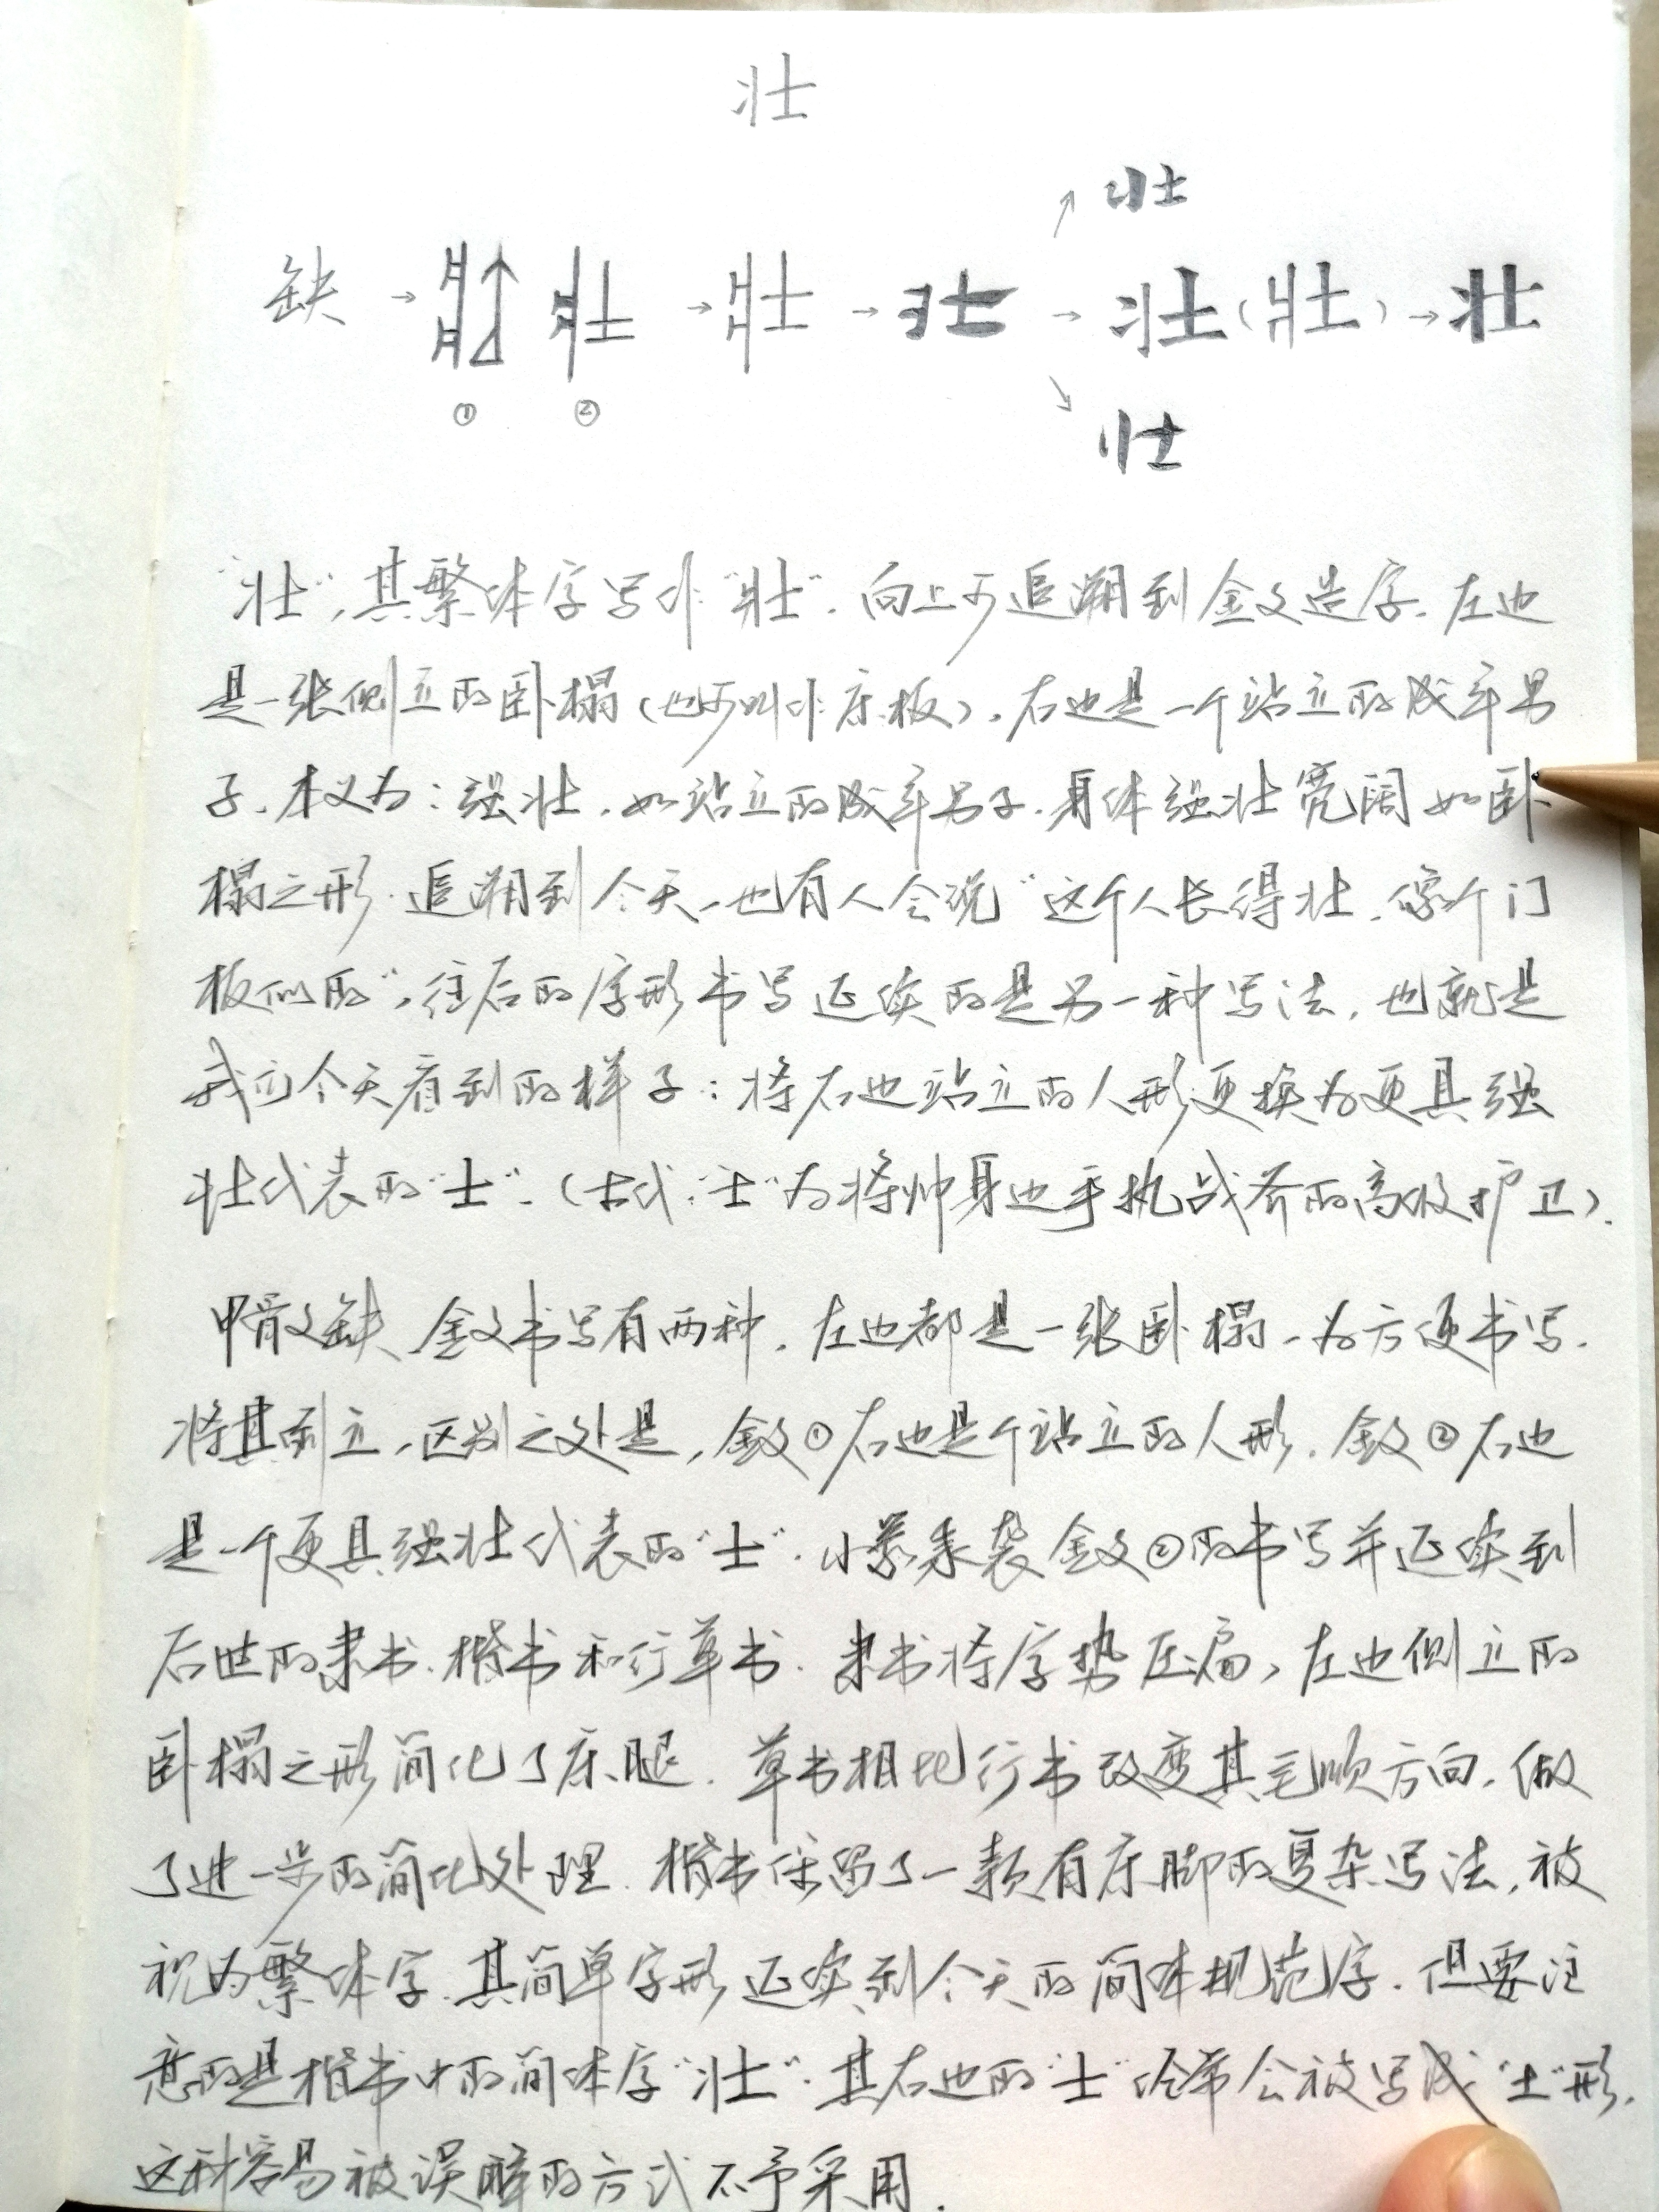 壮
壮
缺 → ① ② → 壯 → 壮 → 壮(壯) → 壮
壮
"壮",其繁体字写作"壯"。向上可追溯到金文造字。左边
是一张侧立的卧榻(也可叫作床板)。右边是一个站立的成年男
子。本义为:强壮。如站立的成年男子。身体强壮宽阔如卧
榻之形。追溯到今天,也有人会说"这个人长得壮,像个门
板似的",往后的字形书写延续的是另一种写法,也就是
我们今天看到的样子:将右边站立的人形更换为更具强
壮代表的"士"。(古代:"士"为将帅身边手执战斧的高级护卫)。
甲骨文缺、金文书写有两种。左边都是一张卧榻,为方便书写。
将其侧立,区别之处是,金文①右边是个站立的人形。金文②右边
是一个更具强壮代表的"士"。小篆承袭金文②的书写并延续到
后世的隶书、楷书和行草书。隶书将字势压扁,左边侧立的
卧榻之形简化了床腿。草书相比行书改变其笔顺方向,做
了进一步的简化处理。楷书保留了一款有床脚的复杂写法,被
视为繁体字。其简单字形延续到今天的简体规范字。但要注
意的是楷书中的简体字"壮"。其右边的"士"经常会被写成"土"形。
这种容易被误解的方式不予采用。